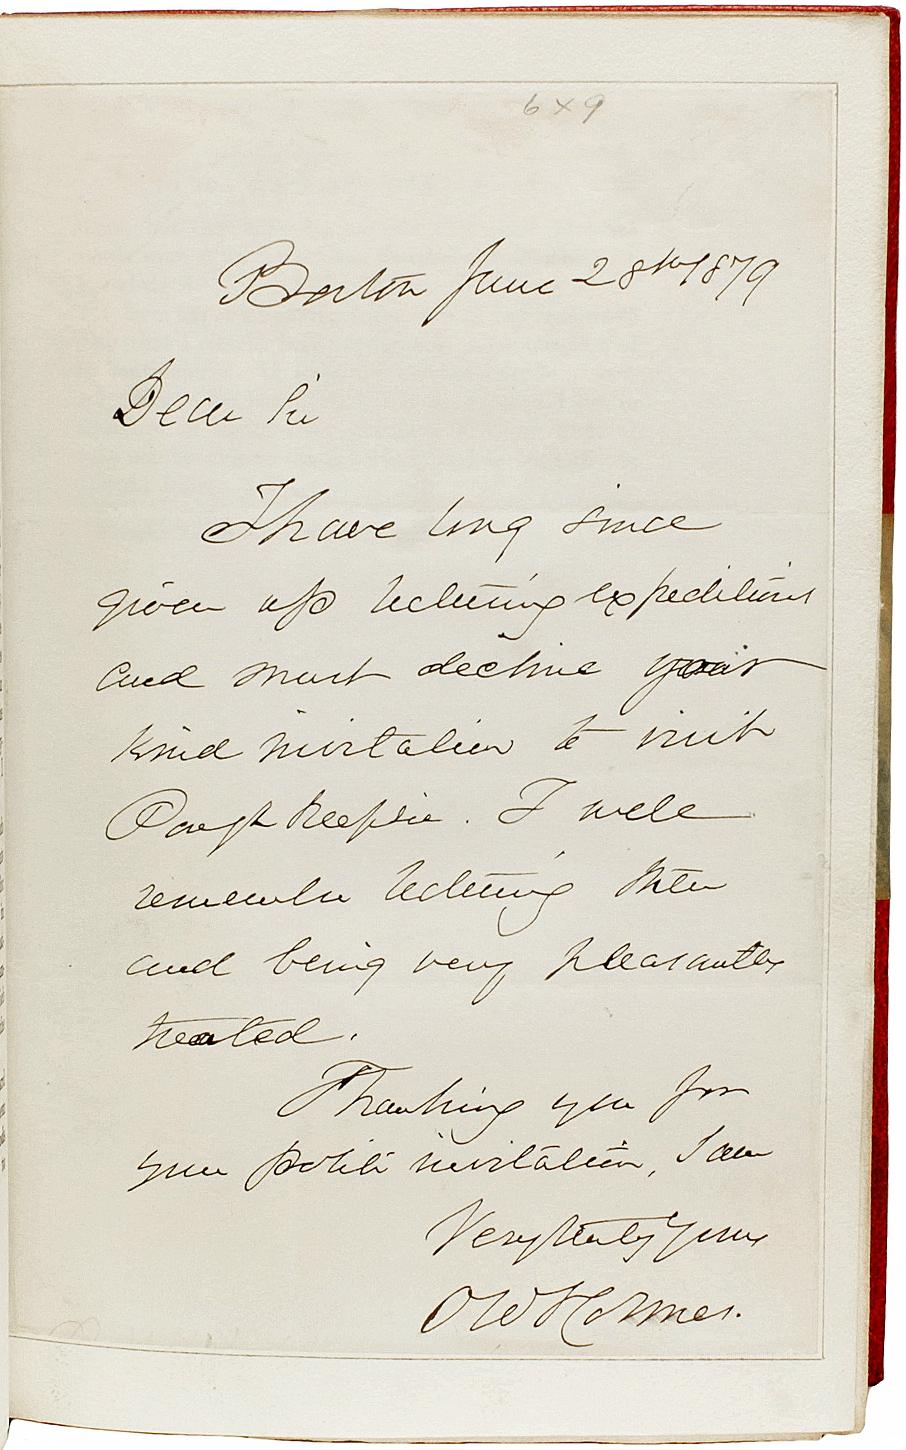 6 x 9
Boston June 28th 1879
Dear Sir
I have long since
given up lecturing expeditions
and must decline your
kind invitation to visit
Poughkeepsie. I well
remember lecturing there
and being very pleasantly
treated.
Thanking you for
your polite invitation, I am
Very truly Yours
O W Holmes.